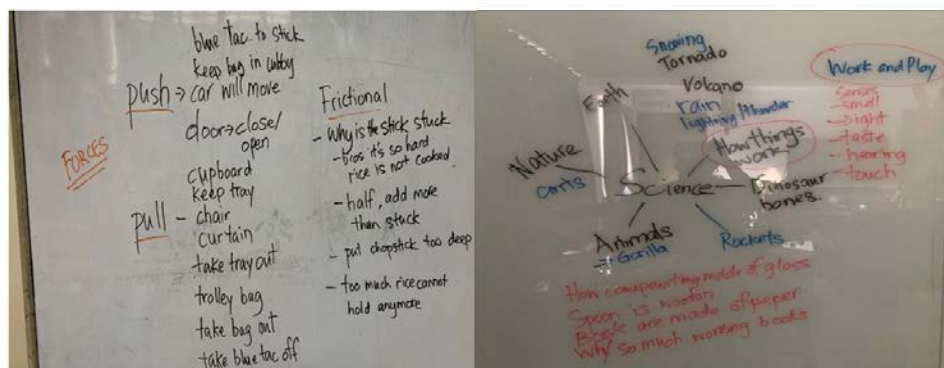 FORCES
push →
blue tac to stick
keep bag in cubby
car will move
door → close/
open
cupboard
keep tray
pull -
chair
curtain
take tray out
trolley bag
take bag out
take blue tac off
Frictional
- Why is the stick stuck
- bcos it's so hard
rice is not cooked.
- half, add more
than stuck
- put chopstick too deep
- too much rice cannot
hold anymore
Snowing
Tornado
Volcano
rain
lightning/thunder
Earth
How things
work
Nature
Science
Dinosaur
bones.
Animals
Gorilla
Rockets
Work and Play
Senses
- smell
- sight
- taste
- hearing
- touch
How come painting made of glass
Spoon is
are made of paper
Why so much working books